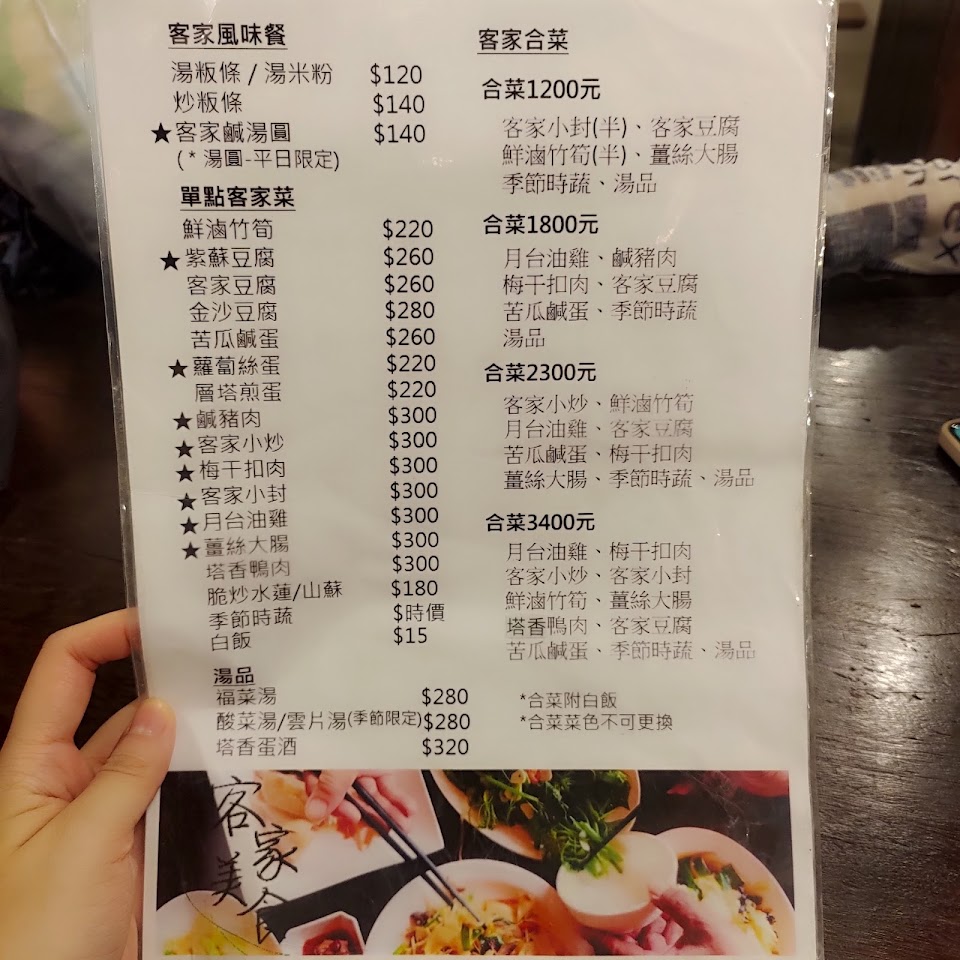 客家風味餐
湯粄條 / 湯米粉 $120
炒粄條 $140
★客家鹹湯圓 $140
(*湯圓-平日限定)
單點客家菜
鮮滷竹筍 $220
★紫蘇豆腐 $260
客家豆腐 $260
金沙豆腐 $280
苦瓜鹹蛋 $260
★蘿蔔絲蛋 $220
層塔煎蛋 $220
★鹹豬肉 $300
★客家小炒 $300
★梅干扣肉 $300
★客家小封 $300
★月台油雞 $300
★薑絲大腸 $300
塔香鴨肉 $300
脆炒水蓮/山蘇 $180
季節時蔬 $時價
白飯 $15
湯品
福菜湯 $280
酸菜湯/雲片湯(季節限定) $280
塔香蛋酒 $320
客家合菜
合菜1200元
客家小封(半)、客家豆腐
鮮滷竹筍(半)、薑絲大腸
季節時蔬、湯品
合菜1800元
月台油雞、鹹豬肉
梅干扣肉、客家豆腐
苦瓜鹹蛋、季節時蔬
湯品
合菜2300元
客家小炒、鮮滷竹筍
月台油雞、客家豆腐
苦瓜鹹蛋、梅干扣肉
薑絲大腸、季節時蔬、湯品
合菜3400元
月台油雞、梅干扣肉
客家小炒、客家小封
鮮滷竹筍、薑絲大腸
塔香鴨肉、客家豆腐
苦瓜鹹蛋、季節時蔬、湯品
*合菜附白飯
*合菜菜色不可更換
客家
美食